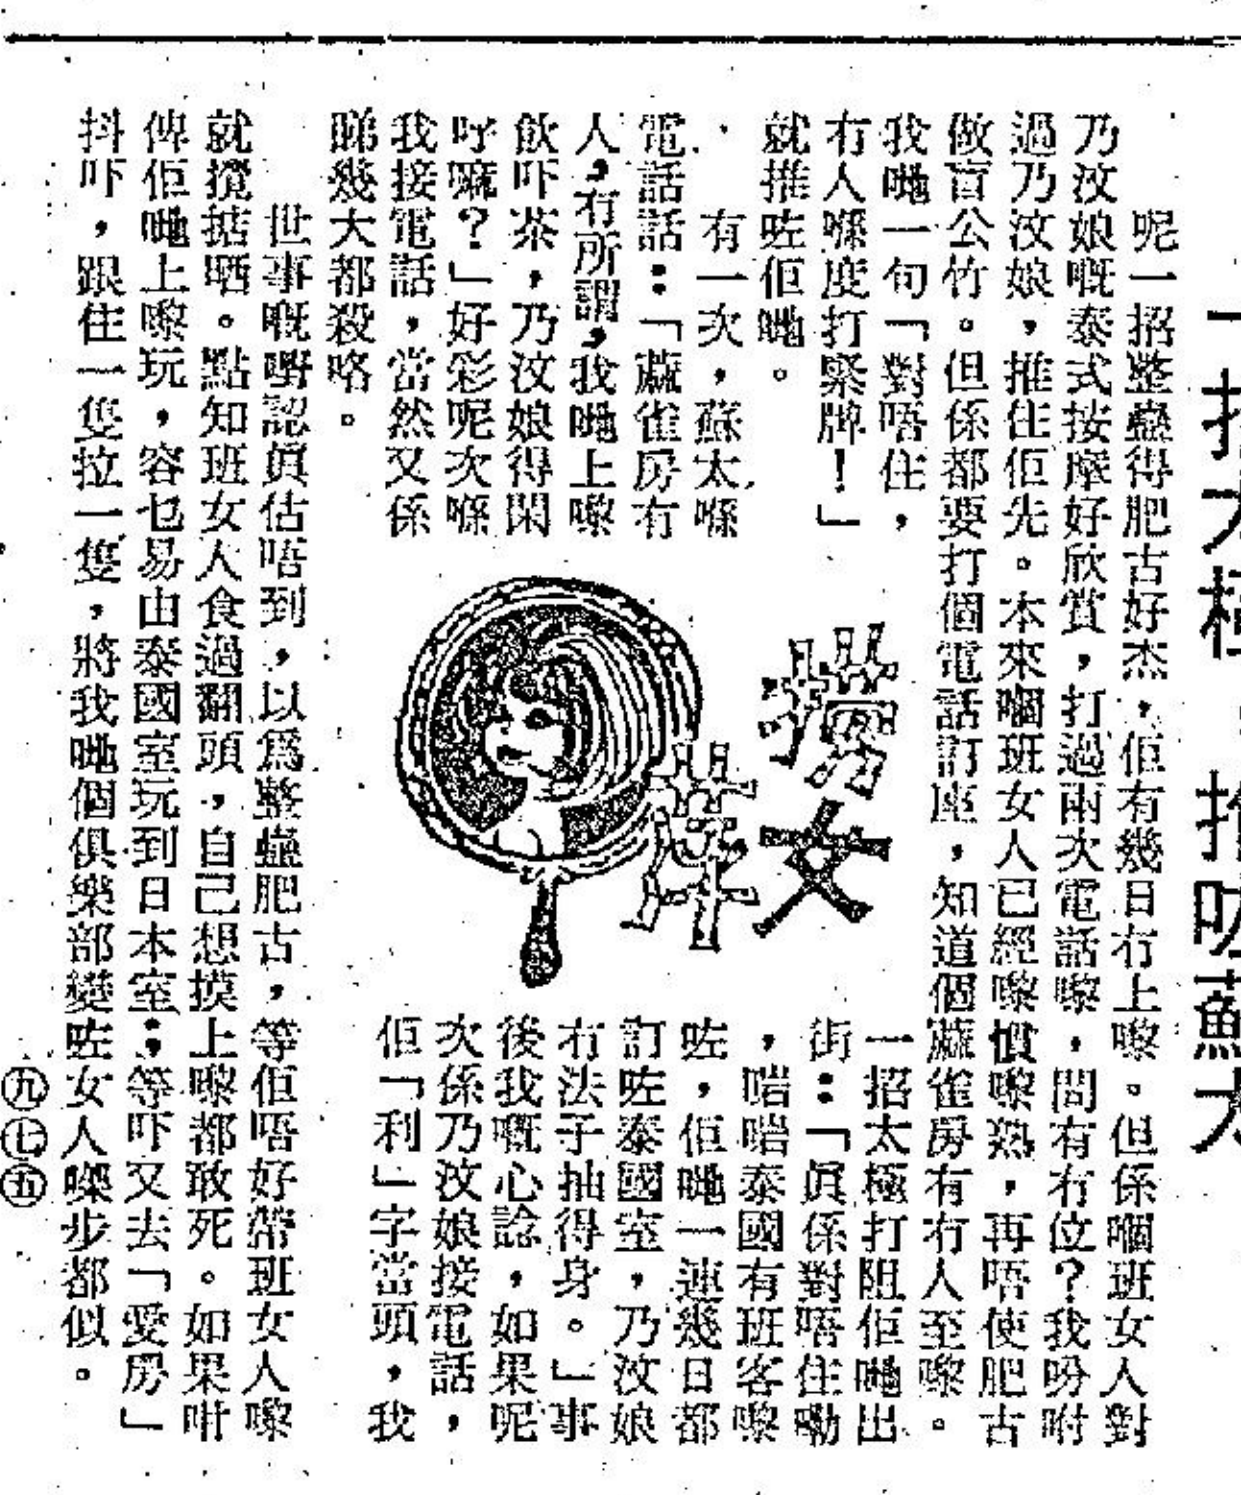 一招太極,推咗蘇太
呢一招整蠱得肥古好杰,佢有幾日冇上嚟。但係嗰班女人對
乃汶娘嘅泰式按摩好欣賞,打過兩次電話嚟,問有冇位?我吩咐
過乃汶娘,推住佢先。本來嗰班女人已經嚟慣嚟熟,再唔使肥古
做盲公竹。但係都要打個電話訂座,知道個蔴雀房有冇人至嚟。
我哋一句「對唔住,
冇人喺度打緊牌!」
就推咗佢哋。
有一次,蘇太喺
電話話:「蔴雀房有
人,冇所謂,我哋上嚟
飲吓茶,乃汶娘得閑
吁嘛?」好彩呢次喺
我接電話,當然又係
撈女
一招太極打阻佢哋出
街:「眞係對唔住嘞
,啱啱泰國有班客嚟
咗,佢哋一連幾日都
訂咗泰國室,乃汶娘
冇法子抽得身。」事
後我嘅心諗,如果呢
次係乃汶娘接電話,
佢「利」字當頭,我
睇幾大都殺咯。
世事嘅嘢認眞估唔到,以爲整蠱肥古,等佢唔好帶班女人嚟
就攪掂晒。點知班女人食過翻頭,自己想摸上嚟都敢死。如果咁
俾佢哋上嚟玩,容乜易由泰國室玩到日本室;等吓又去「愛房」
抖吓,跟住一隻拉一隻,將我哋個俱樂部變咗女人㗎步都似。
㊈㊆㊄